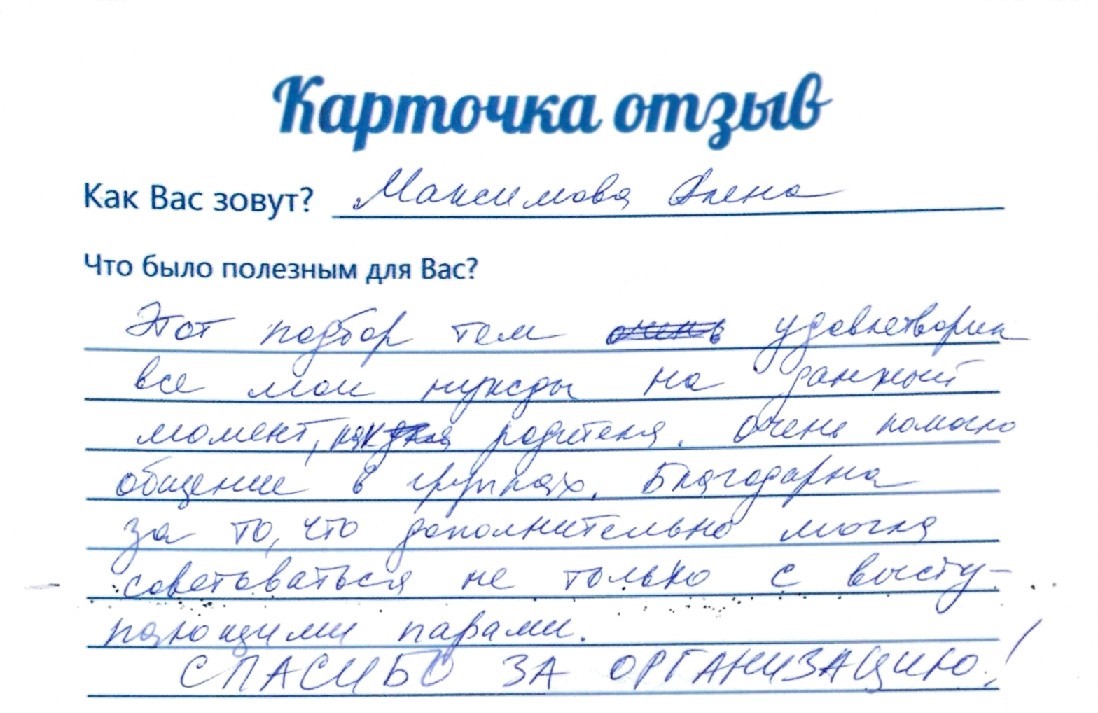 Карточка отзыв
Как Вас зовут? Максимова Алена
Что было полезным для Вас?
Этот подбор тем удовлетворил
все мои нужды на данный
момент, как родителя. Очень помогло
общение в группах. Благодарна
за то, что дополнительно могла
советоваться не только с высту-
пающими парами.
СПАСИБО ЗА ОРГАНИЗАЦИЮ!